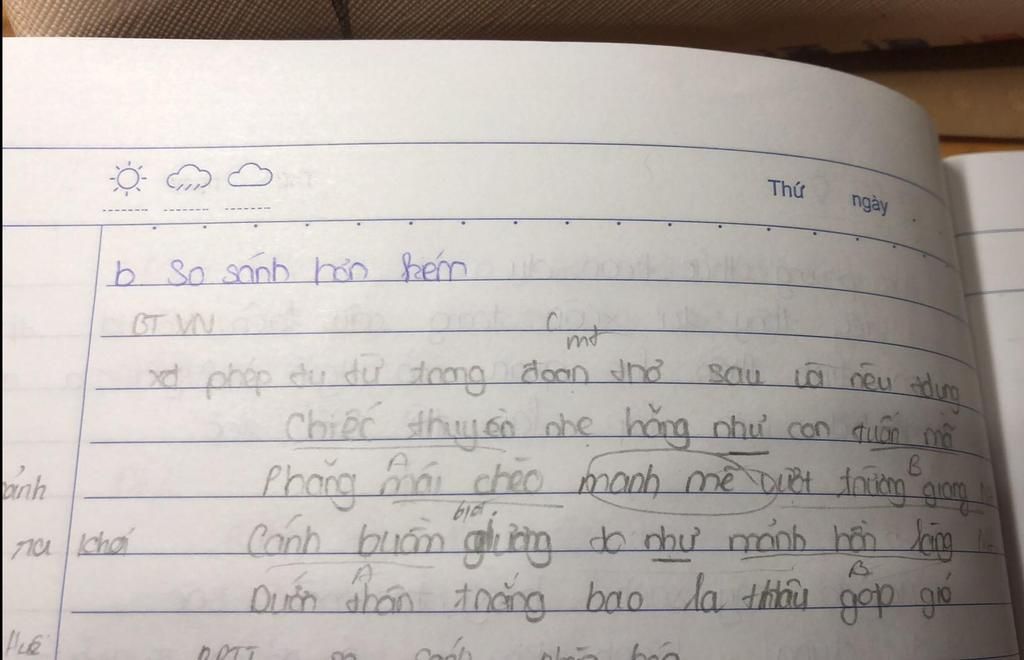 Thứ ngày
b So sánh hơn kém
BT VN
mđ
xđ phép tu từ trong đoạn thơ sau và nêu tdung
Chiếc thuyền nhẹ hăng như con tuấn mã
A B
ảnh Phăng mái chèo mạnh mẽ vượt trường giang
giơ
khơi Cánh buồm giương to như mảnh hồn làng
A B
Dướn thân trắng bao la thâu góp gió
BPTT so sánh nhân hóa